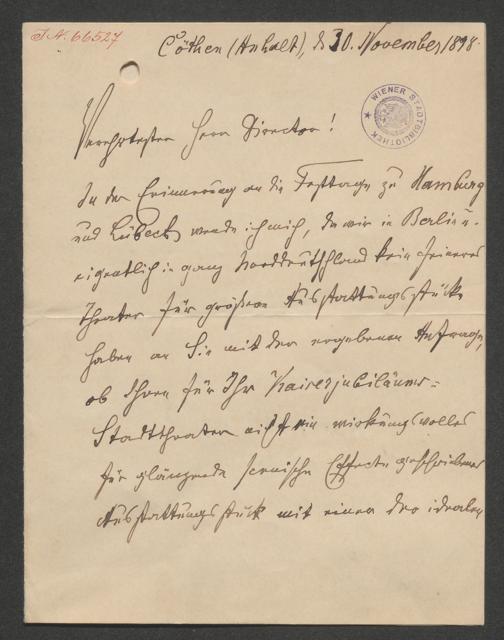 J.N. 66527
Cöthen (Anhalt), d. 30. November 1898.
WIENER STADTBIBLIOTHEK
Verehrtester Herr Director!
In der Erinnerung an die Festtage zu Hamburg
und Lübeck wende ich mich, da wir in Berlin u.
eigentlich in ganz Norddeutschland kein feineres
Theater für größere Ausstattungsstücke
haben an Sie mit der ergebenen Anfrage,
ob Ihnen für Ihr Kaiserjubiläums-
Stadttheater nicht ein wirkungsvolles
für glänzende scenische Effecte geschriebenes
Ausstattungsstück mit einer der idealen